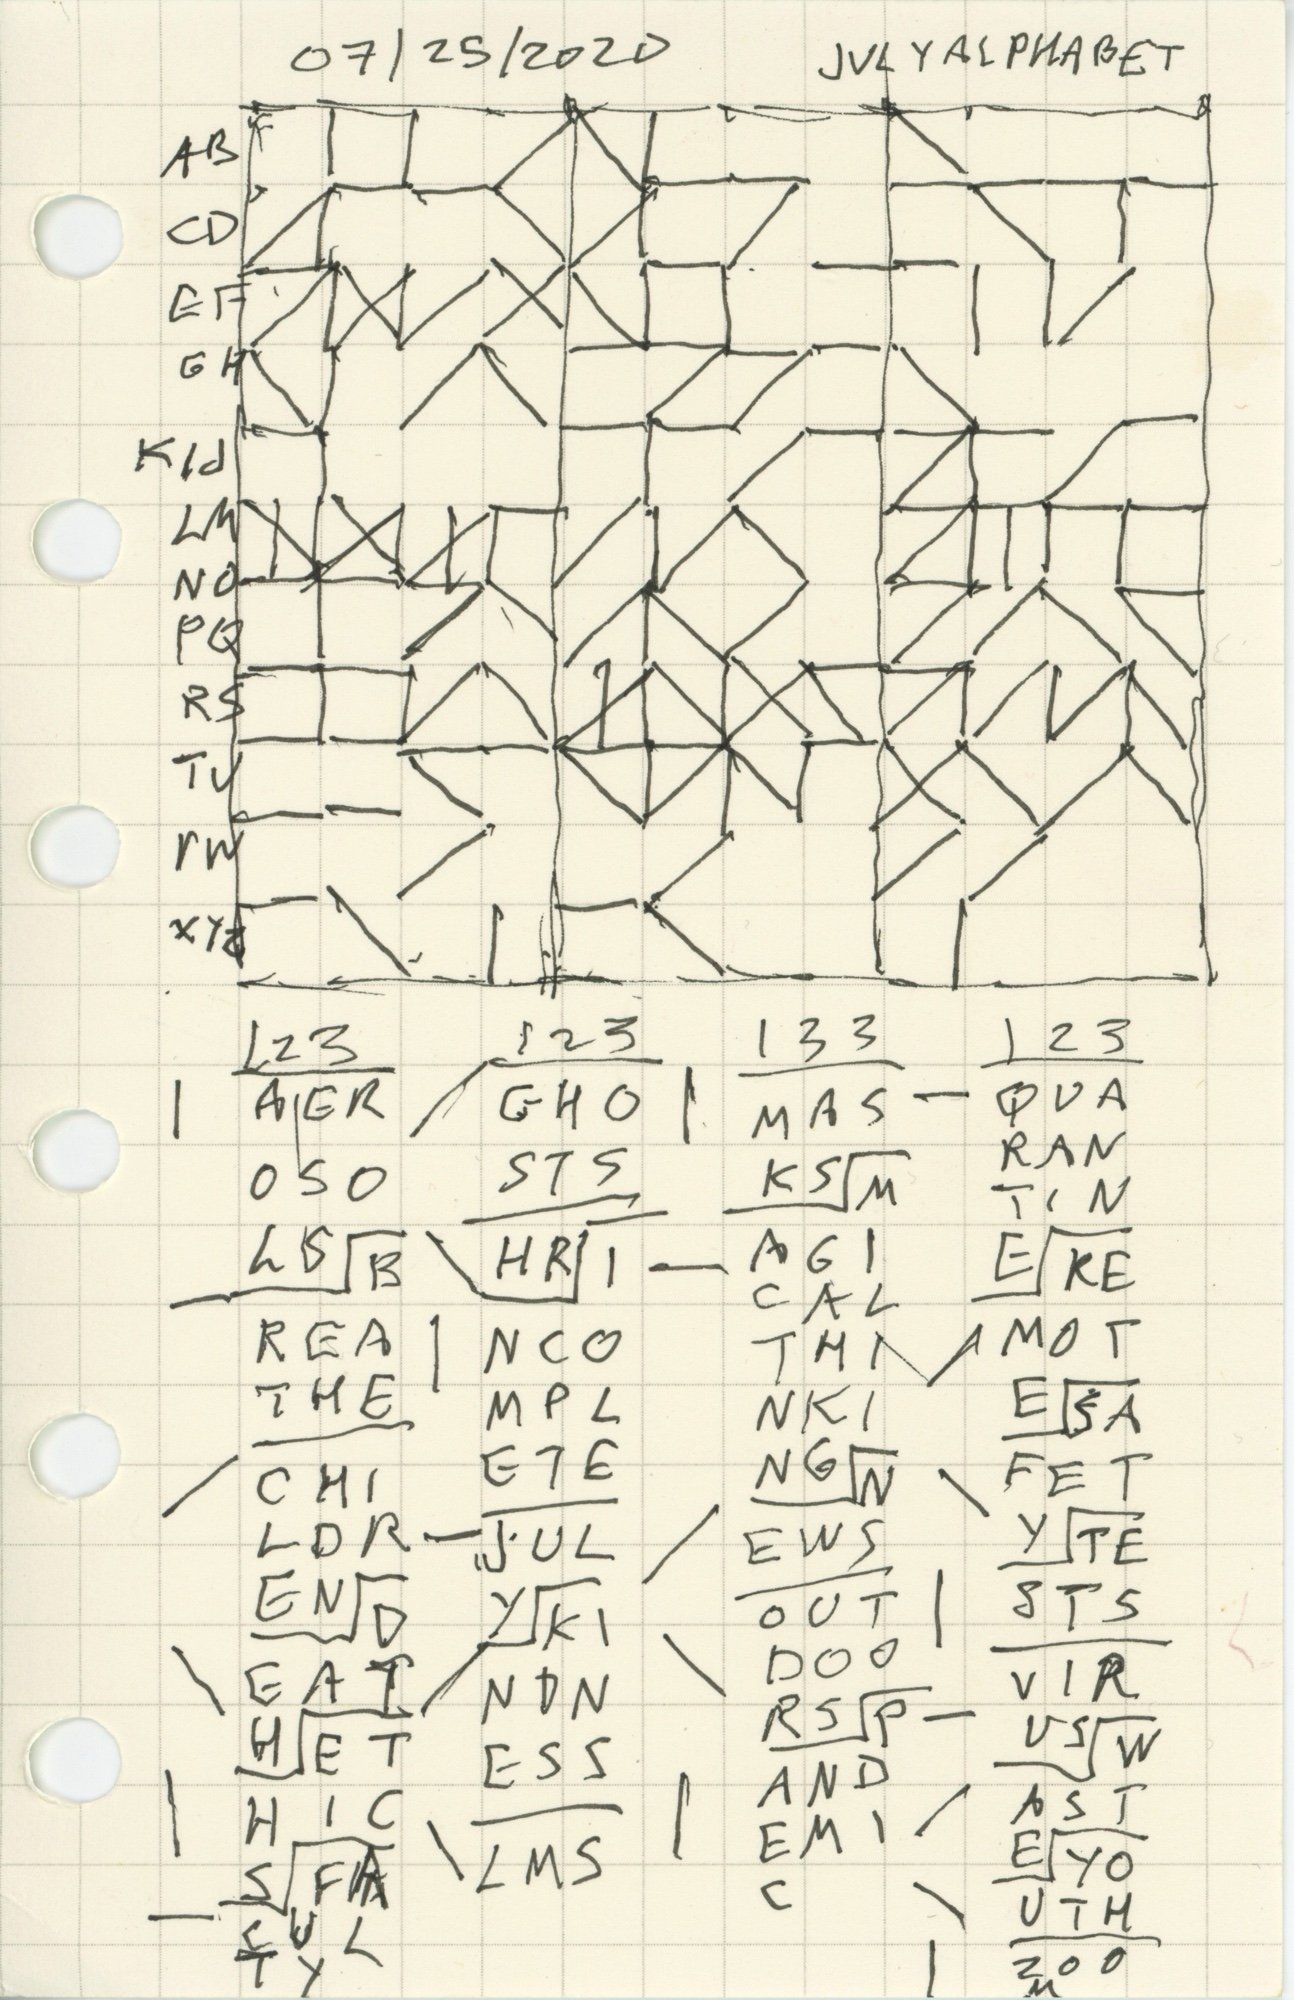 07/25/2020
JULYALPHABET
AB
CD
EF
GH
KIJ
LM
NO
PQ
RS
TU
VW
XYZ
123
AER
OSO
LS B
REA
THE
CHI
LDR
EN D
EAT
H ET
HIC
S FA
CUL
TY
123
GHO
STS
HR I
NCO
MPL
ETE
JUL
Y KI
NDN
ESS
LMS
133
MAS
KS M
AGI
CAL
THI
NKI
NG N
EWS
OUT
DOO
RS P
AND
EMI
C
123
QUA
RAN
TIN
E RE
MOT
E SA
FET
Y TE
STS
VIR
US W
AST
E YO
UTH
ZOO
M